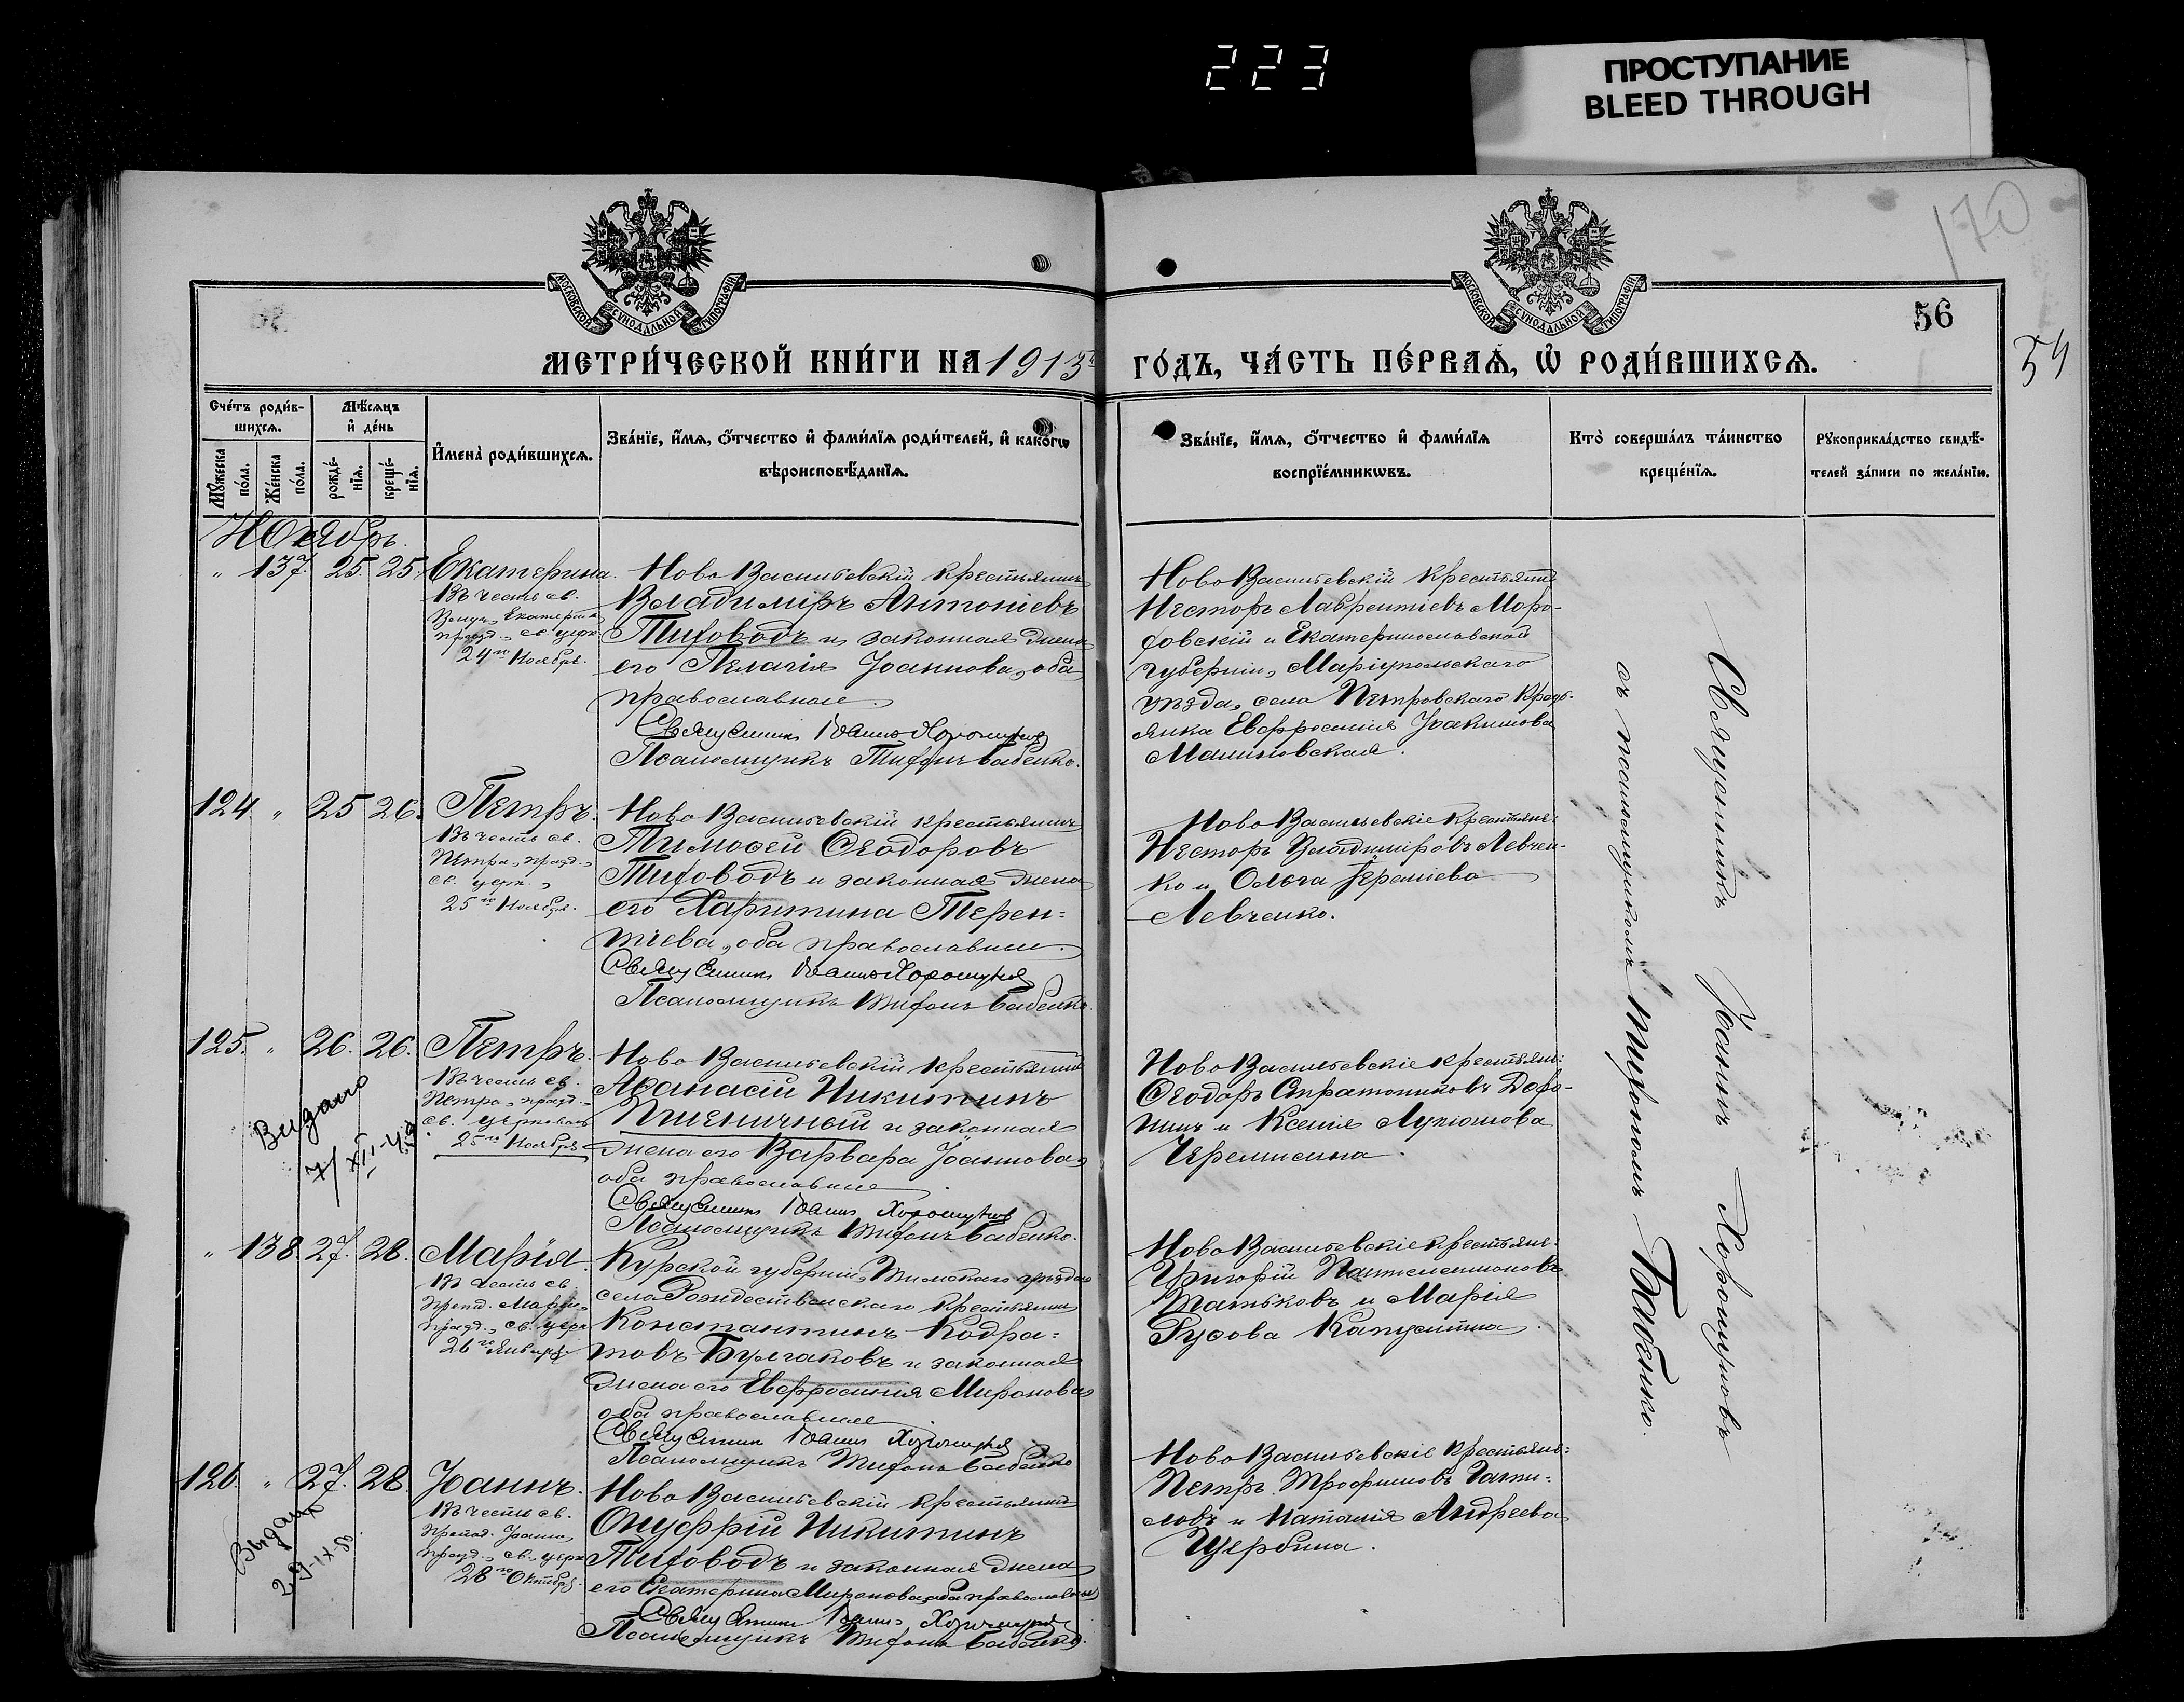 223
ПРОСТУПАНИЕ
BLEED THROUGH
170
МОСКОВСКОЙ СУНОДАЛЬНОЙ ТИПОГРАФІИ
МОСКОВСКОЙ СУНОДАЛЬНОЙ ТИПОГРАФІИ
56
54
МЕТРИ́ЧЕСКОЙ КНИ́ГИ НА 1913 г.
ГО́ДЪ, ЧА́СТЬ ПЕ́РВАѦ, Ѽ РОДИ́ВШИХСѦ.
Сче́тъ роди́в-
шихсѧ.
Мꙋ́жеска по́ла.
Же́нска по́ла.
Мѣ́сѧцъ
и҆ де́нь
рожде́-
нїѧ.
креще́-
нїѧ.
И҆мена̀ роди́вшихсѧ.
Зва́нїе, и҆́мѧ, ѻ҆́тчество и҆ фами́лїѧ роди́телей, и҆ како́гѡ
вѣроисповѣ́данїѧ.
Зва́нїе, и҆́мѧ, ѻ҆́тчество и҆ фами́лїѧ
воспрїе́мникѡвъ.
Кто̀ соверша́лъ та́инство
креще́нїѧ.
Рꙋкоприкла́дство свидѣ́-
телей за́писи по жела́нїю.
Ноябрь.
" 137. 25. 25. Екатерина.
Въ честь св.
Велик. Екатерины
празд. св. церк.
24го Ноября.
Ново Васильевскій крестьянинъ
Владиміръ Антоніевъ
Тиховодъ и законная жена
его Пелагія Іоаннова, оба
православные.
Священникъ Іоаннъ Хорошуновъ
Псаломщикъ Тихонъ Бабенко.
Ново Васильевскій крестьянинъ
Несторъ Лаврентіевъ Моро-
зовскій и Екатеринославской
губерніи, Маріупольскаго
уѣзда, села Петровскаго кресть-
янка Евфросинія Іоакимова
Малиновская.
124 " 25 26. Петръ.
Въ честь св.
Петра, празд.
св. церк.,
25го Ноября.
Ново Васильевскій крестьянинъ
Тимоѳей Ѳеодоровъ
Тиховодъ и законная жена
его Харитина Терен-
тіева, оба православные.
Священникъ Іоаннъ Хорошуновъ
Псаломщикъ Тихонъ Бабенко.
Ново Васильевскіе крестьяне:
Несторъ Владиміровъ Левчен-
ко и Ольга
Левченко.
125. " 26. 26. Петръ.
Въ честь св.
Петра, празд.
св. церковью
25го Ноября
Видано
7/XII-49.
Ново Васильевскій крестьянинъ
Аѳанасій Никитинъ
Пшеничный и законная
жена его Варвара Іоаннова,
оба православные
Священникъ Іоаннъ Хорошуновъ
Псаломщикъ Тихонъ Бабенко.
Ново Васильевскіе крестьяне:
Ѳеодоръ Стратониковъ
и Ксенія
Черемисина.
" 138. 27. 28. Марія.
Въ честь св.
препод. Маріи,
празд. св. церк.
26го Января
Курской губерніи, Тимскаго уѣзда
села Рождественскаго крестьянинъ
Константинъ Кодра-
товъ Булгаковъ и законная
жена его Евфросинія Миронова,
оба православные
Священникъ Іоаннъ Хорошуновъ
Псаломщикъ Тихонъ Бабенко
Ново Васильевскіе крестьяне:
Григорій Пантелеимоновъ
и Марія
Капустина.
126. " 27. 28. Іоаннъ.
Въ честь св.
препод. Іоанна,
празд. св. церк.
28го Октября.
Выдан
Ново Васильевскій крестьянинъ
Онуфрій Никитинъ
Тиховодъ и законная жена
его Екатерина Миронова, оба православные
Священникъ Іоаннъ Хорошуновъ
Псаломщикъ Тихонъ Бабенко.
Ново Васильевскіе крестьяне:
Петръ Трофимовъ
и Наталія Андреева
Щербина.
Священникъ Іоаннъ Хорошуновъ
съ псаломщикомъ Тихономъ Бабенко.